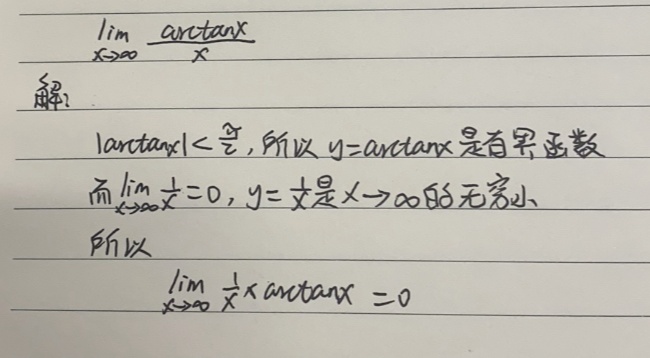 lim x→∞ arctanx / x
解:
|arctanx| < π/2, 所以 y=arctanx 是有界函数
而 lim x→∞ 1/x = 0, y = 1/x 是 x→∞ 的无穷小
所以
lim x→∞ 1/x × arctanx = 0